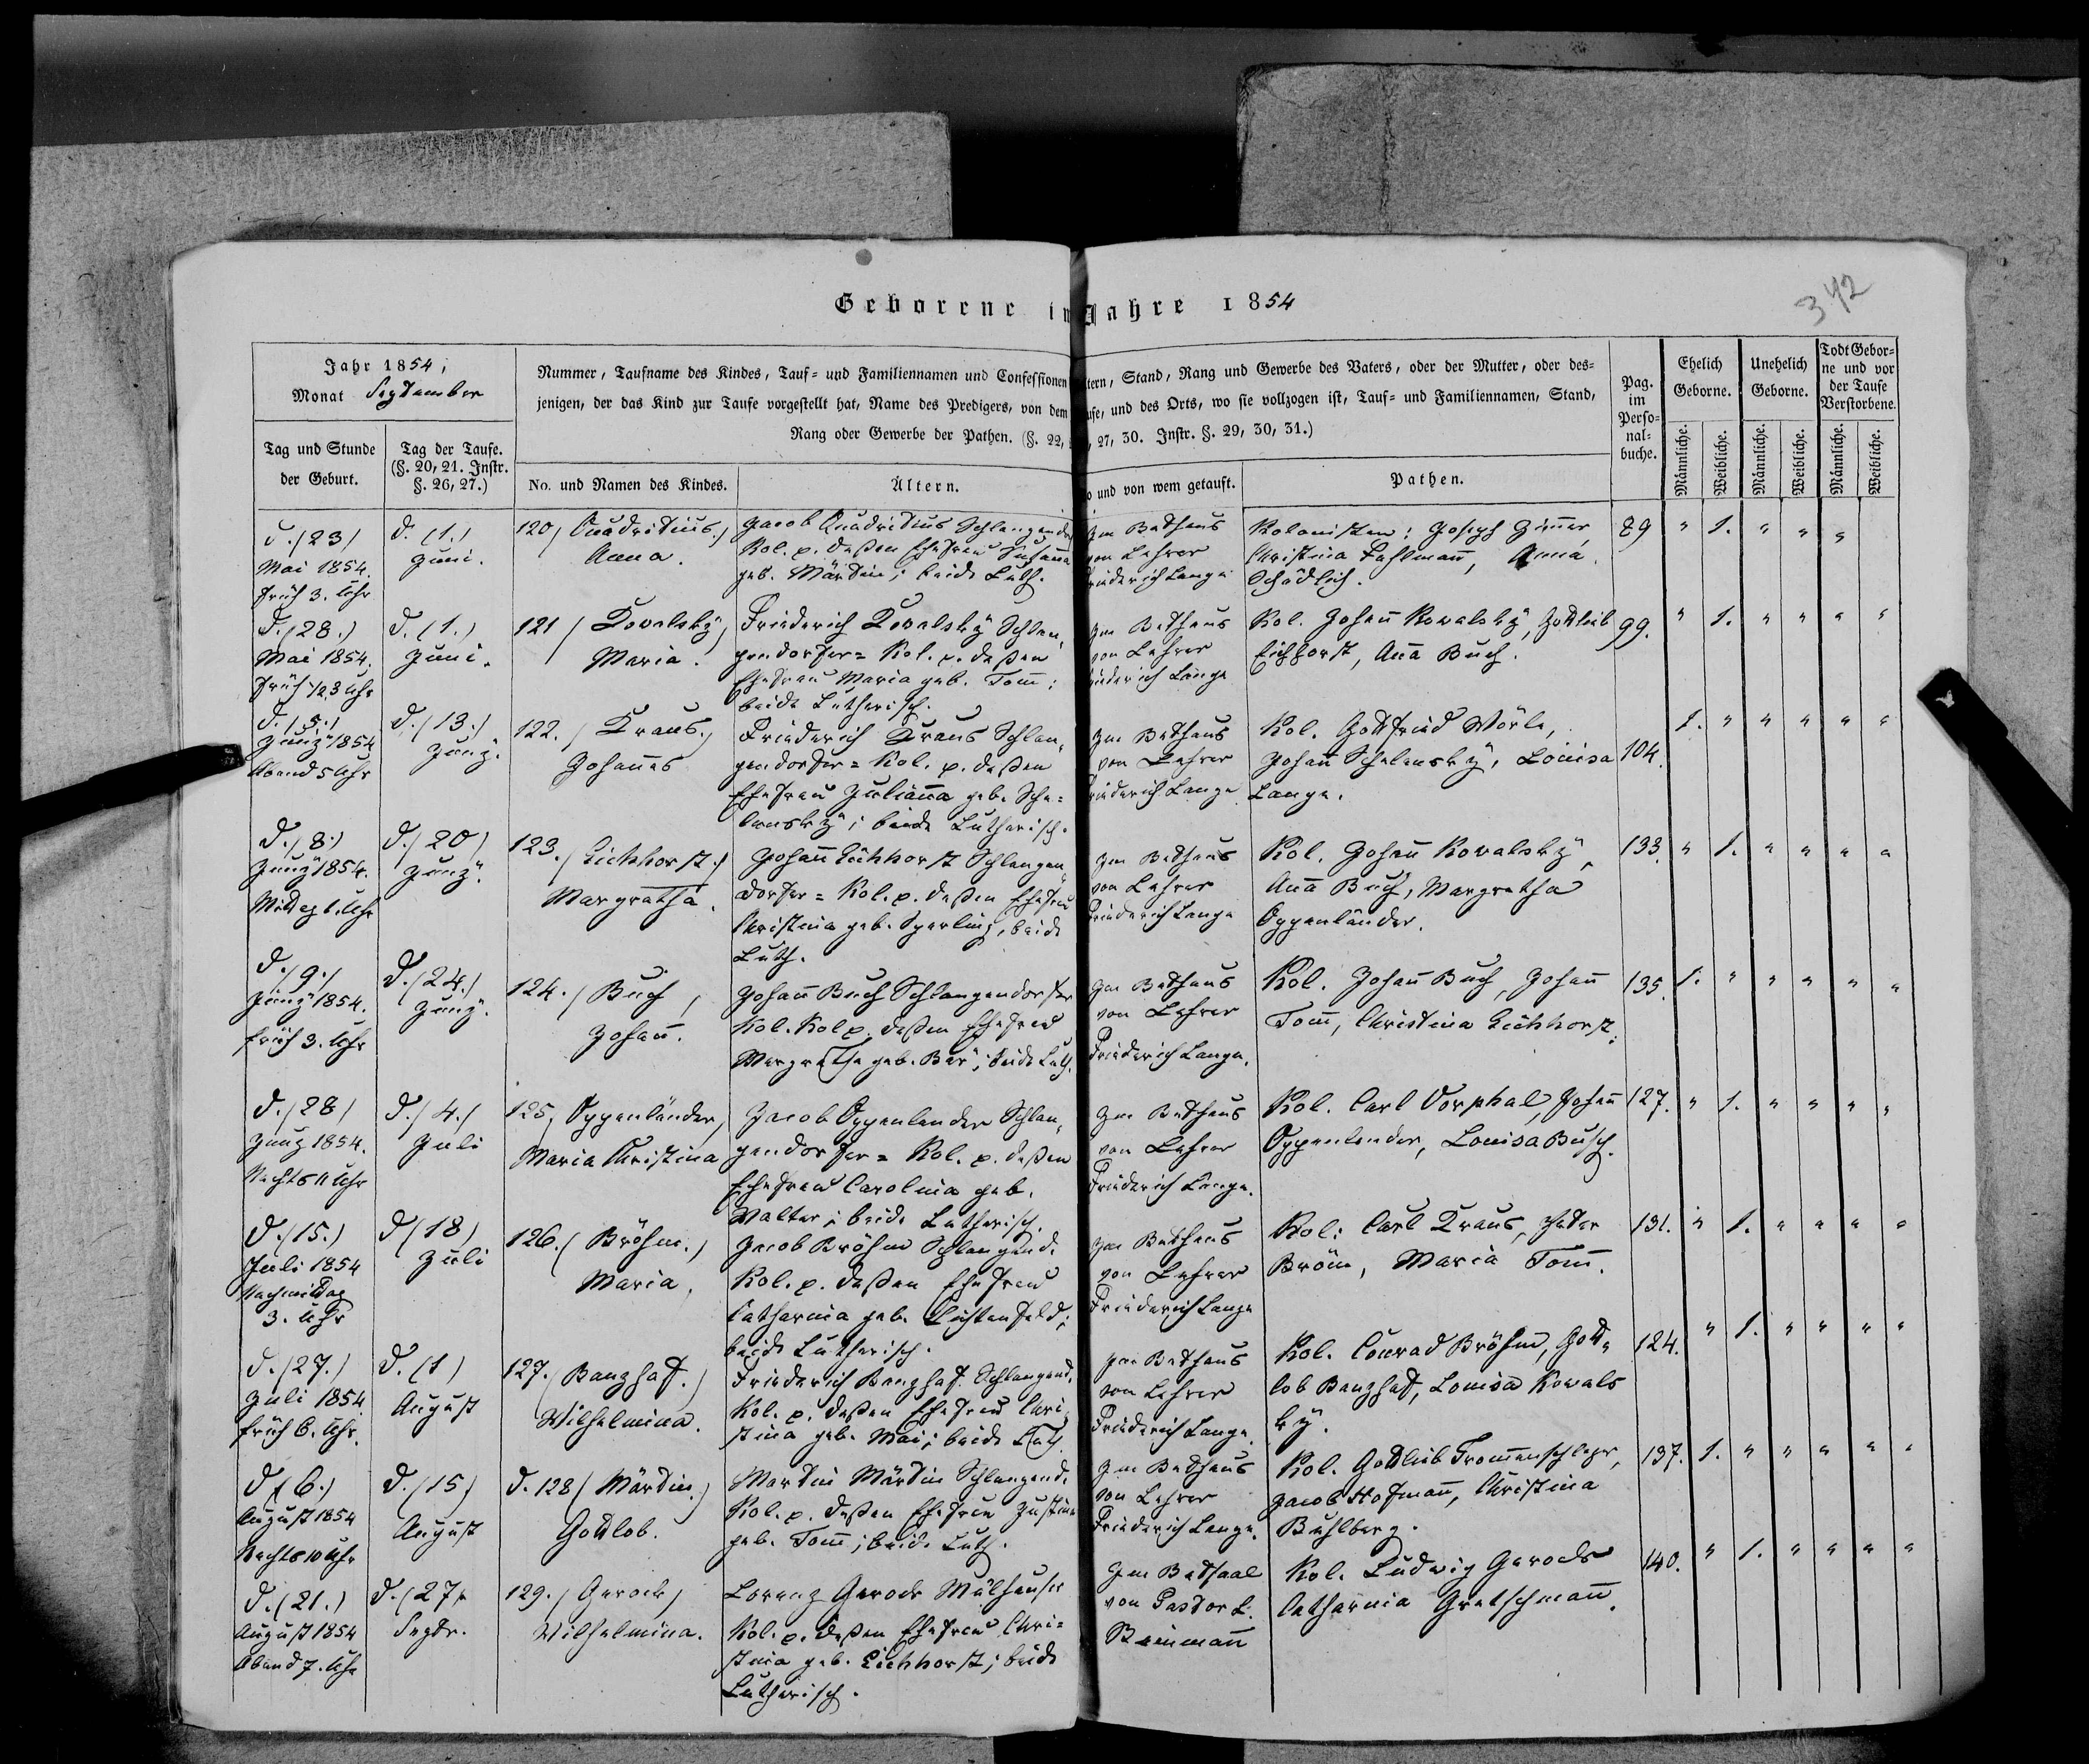 342
Geborene im Jahre 1854
Jahr 1854,
Monat September
Nummer, Taufname des Kindes, Tauf- und Familiennamen und Confessionen
tern, Stand, Rang und Gewerbe des Vaters, oder der Mutter, oder des-
jenigen, der das Kind zur Taufe vorgestellt hat, Name des Predigers, von dem
ufe, und des Orts, wo sie vollzogen ist, Tauf- und Familiennamen, Stand,
Rang oder Gewerbe der Pathen. (§. 22,
, 27, 30. Instr. §. 29, 30, 31.)
Pag.
im
Perso-
nal-
buche.
Ehelich
Geborne.
Unehelich
Geborne.
Todt Gebor-
ne und vor
der Taufe
Verstorbene.
Tag und Stunde
der Geburt.
Tag der Taufe.
(§. 20, 21. Instr.
§. 26, 27.)
No. und Namen des Kindes.
Ältern.
o und von wem getauft.
Pathen.
Männliche.
Weibliche.
Männliche.
Weibliche.
Männliche.
Weibliche.
d. (23)
Mai 1854.
früh 3. Uhr
d. (1.)
Juni.
120, Quadritius,
Anna.
Jacob Quadritius Schlangend
Kol. p. deßen Ehefrau Susanna
geb. Märtin; beide Luth.
Im Bethaus
von Lehrer
riederich Lange
Kolonisten: Joseph Zimer,
Christina Fahlmann, Anna
Schädlich.
89 " 1. " " "
d. (28.)
Mai 1854.
früh 1/2 3 Uhr
d. (1.)
Juni.
121 / Kovalsky,
Maria.
Friederich Kovalsky Schlan-
gendorfer= Kol. p. deßen
Ehefrau Maria geb. Tom̄;
beide Lutherisch.
Im Bethaus
von Lehrer
riederich Lange
Kol. Johan̄ Kowalsky, Gottlieb
Eichhorst, Ana Buch.
99. " 1. " " " "
d. (5.)
Juny 1854
Abend 5 Uhr
d. (13.)
Juny.
122. / Kraus.,
Johanes
Friederich Kraus Schlan-
gendorfer= Kol. p. deßen
Ehefrau Juliana geb. Sche-
lensky; beide Lutherisch.
Im Bethaus
von Lehrer
riederich Lange
Kol. Gottfried Wörle,
Johan̄ Schelensky, Louisa
Lange.
104. 1. " " " " "
d. (8.)
Juny 1854.
Mittag 1. Uhr
d. (20)
Juny.
123. / Eichhorst.,
Margretha.
Johan̄ Eichhorst Schlangen-
dorfer= Kol. p. deßen Ehefrau
Christina geb. Sperling, beide
Luth.
Im Bethaus
von Lehrer
Friederich Lange
Kol. Johan̄ Kovalsky,
Ana Buch, Margretha
Oppenländer.
133. " 1. " " " "
d. (9.)
Juny 1854.
früh 3. Uhr
d. (24.)
Juny.
124. / Buch,
Johan̄.
Johan̄ Buch Schlangendorfer
Kol. Kol p. deßen Ehefrau
Margretha geb. Bär; beide Luth.
Im Bethaus
von Lehrer
Friederich Lange.
Kol. Johan̄ Buch, Johan̄
Tom̄, Christina Eichhorst.
135. 1. " " " " "
d. (28)
Juny 1854.
Nachts 11 Uhr
d. (4.)
Juli
125, Oppenländer,
Maria Christina
Jacob Oppenlander Schlan-
gendorfer= Kol. p. deßen
Ehefrau Carolina geb.
Walter; beide Lutherisch.
Im Bethaus
von Lehrer
Friederich Lange.
Kol. Carl Dorphal, Johan̄
Oppenlender, Louisa Busch.
127. " 1. " " " "
d. (15.)
Juli 1854
Nachmittag
3. Uhr
d (18)
Juli
126. ( Bröhm.)
Maria,
Jacob Bröhm Schlangend.
Kol. p. deßen Ehefrau
Catharina geb. Lichtenfeld;
beide Lutherisch.
Im Bethaus
von Lehrer
Friederich Lange
Kol: Carl Kraus, Peter
Bröm, Maria Tom̄.
131. " 1. " " " "
d. (27.)
Juli 1854
früh 6. Uhr.
d. (1)
August
127. ( Banzhaf.)
Wilhelmina.
Friederich Banzhaf Schlangend.
Kol. p. deßen Ehefrau Chri-
stina geb. Mai; beide Luth.
Im Bethaus
von Lehrer
Friederich Lange.
Kol. Conrad Bröhm, Gott-
lob Banzhaf, Louisa Kowals
ky.
124. " 1. " " " "
d (6.)
August 1854
Nachts 10 Uhr
d. (15)
August
d. 128 ( Märtin.)
Gottlob.
Martin Märtin Schlangend.
Kol. p. deßen Ehefrau Justina
geb. Tom̄; beide Luth.
Im Bethaus
von Lehrer
Friederich Lange.
Kol. Gottlieb Trom̄enschleger,
Jacob Hofman̄, Christina
Buhlberg.
137. 1. " " " " "
d. (21.)
August 1854
Abend 7. Uhr
d. (27
Septr.
129. / Gerock,
Wilhelmina.
Lorenz Gerock Mülhauser
Kol. p. deßen Ehefrau Chri-
stina geb. Eichhorst; beide
Lutherisch.
Im Betsaal
von Pastor L.
Kol. Ludwig Gerock
Catharina Gretschman̄.
140. " 1. " " " "